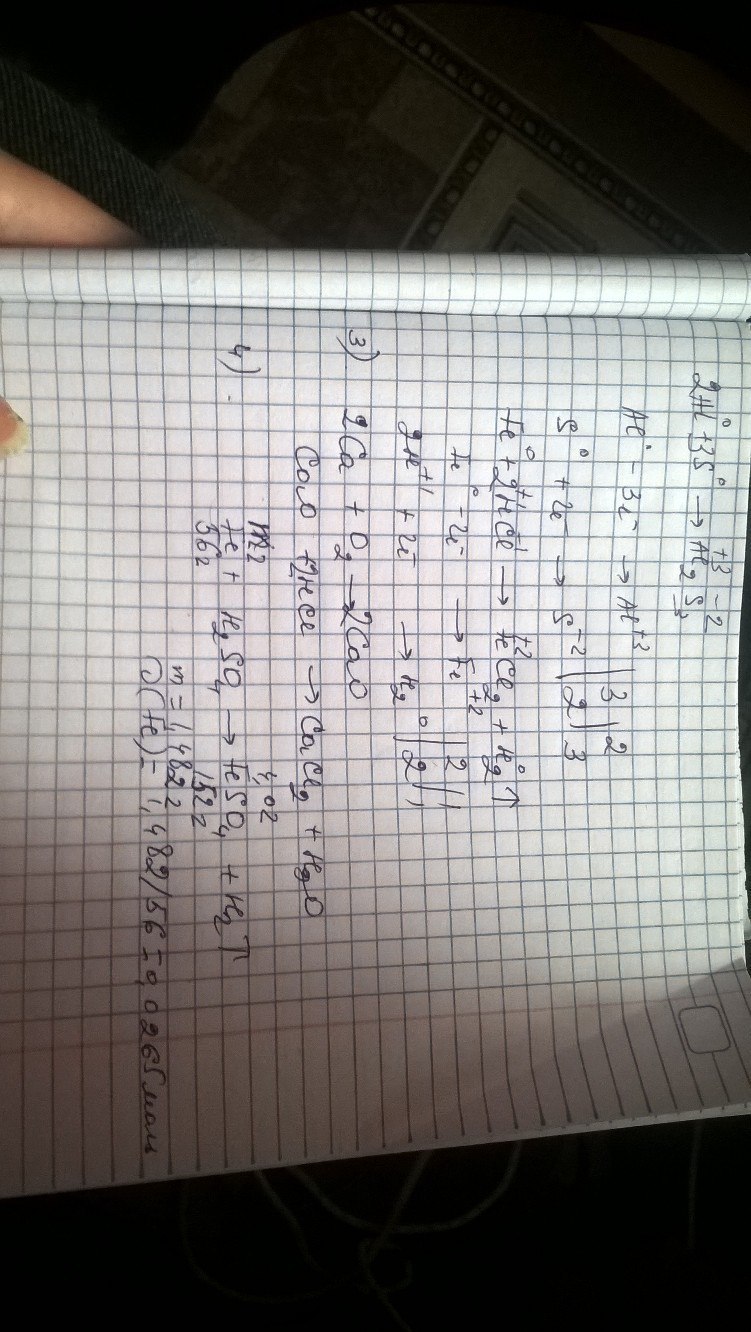 2Al⁰ + 3S⁰ → Al₂⁺³S₃⁻²
Al⁰ - 3e⁻ → Al⁺³ | 3 | 2
S⁰ + 2e⁻ → S⁻² | 2 | 3
Fe⁰ + 2H⁺¹Cl⁻¹ → Fe⁺²Cl₂ + H₂⁰↑
Fe⁰ - 2e⁻ → Fe⁺² | 2 | 1
2H⁺¹ + 2e⁻ → H₂⁰ | 2 | 1
3) 2Ca + O₂ → 2CaO
CaO + 2HCl → CaCl₂ + H₂O
4,02
4) Fe + H₂SO₄ → FeSO₄ + H₂↑
56г 152г
m = 1,482г
(Fe) = 1,482/56 = 0,0265 мол